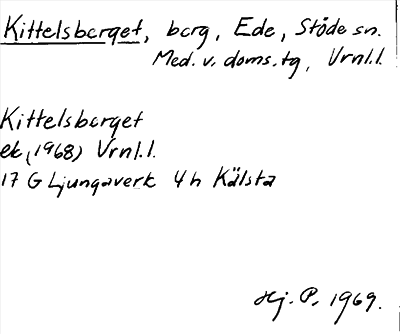 Kittelsberget, berg, Ede, Stöde sn.
Med. v. doms. tg, Vrnl.l.
Kittelsberget
ek (1968) Vrnl.l.
17 G Ljungaverk 4 h Kälsta
Hj. P. 1969.